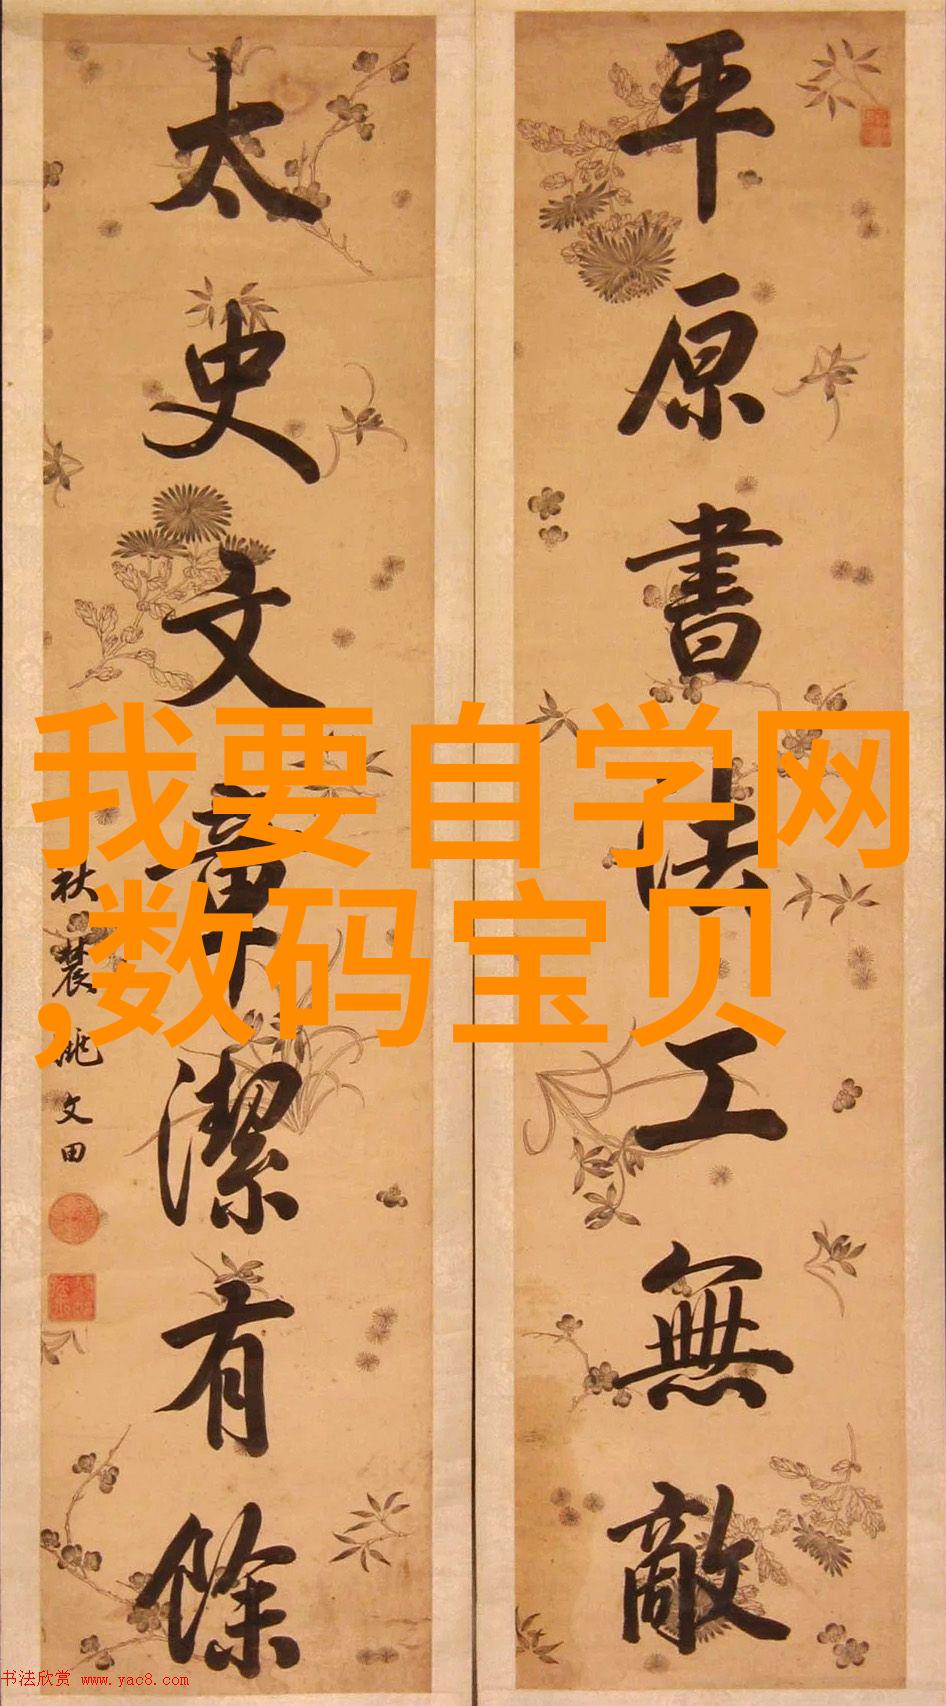 平原書法工無敵
太史文章潔有餘
秋農姚文田
我要自学网
,数码宝贝
书法欣赏 www.yac8.com